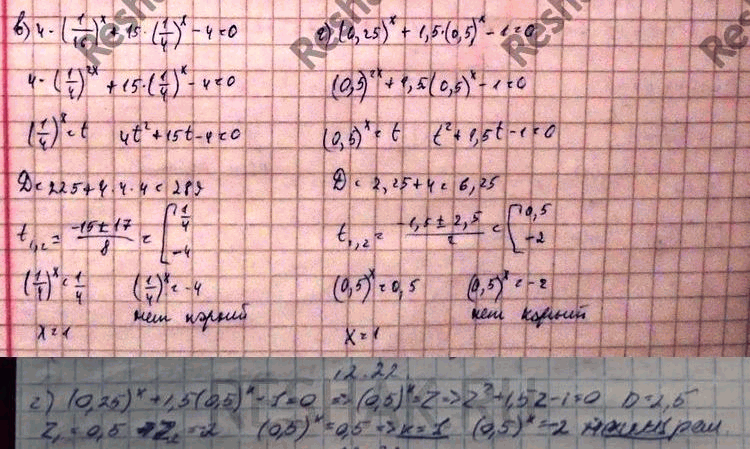 в) 4·(1/16)^x + 15·(1/4)^x − 4 = 0
4·(1/4)^2x + 15·(1/4)^x − 4 = 0
(1/4)^x = t 4t² + 15t − 4 = 0
D = 225 + 4·4·4 = 289
t₁,₂ = (−15 ± 17)/8 = [1/4 −4
(1/4)^x = 1/4 (1/4)^x = −4
нет корней
x = 1
г) (0,25)^x + 1,5·(0,5)^x − 1 = 0
(0,5)^2x + 1,5(0,5)^x − 1 = 0
(0,5)^x = t t² + 1,5t − 1 = 0
D = 2,25 + 4 = 6,25
t₁,₂ = (−1,5 ± 2,5)/2 = [0,5 −2
(0,5)^x = 0,5 (0,5)^x = −2
нет корней
x = 1
12.22.
г) (0,25)^x + 1,5(0,5)^x − 1 = 0 => (0,5)^x = Z => Z² + 1,5Z − 1 = 0 D = 2,5
Z₁ = 0,5 Z₂ = −2 (0,5)^x = 0,5 => x = 1 (0,5)^x = −2